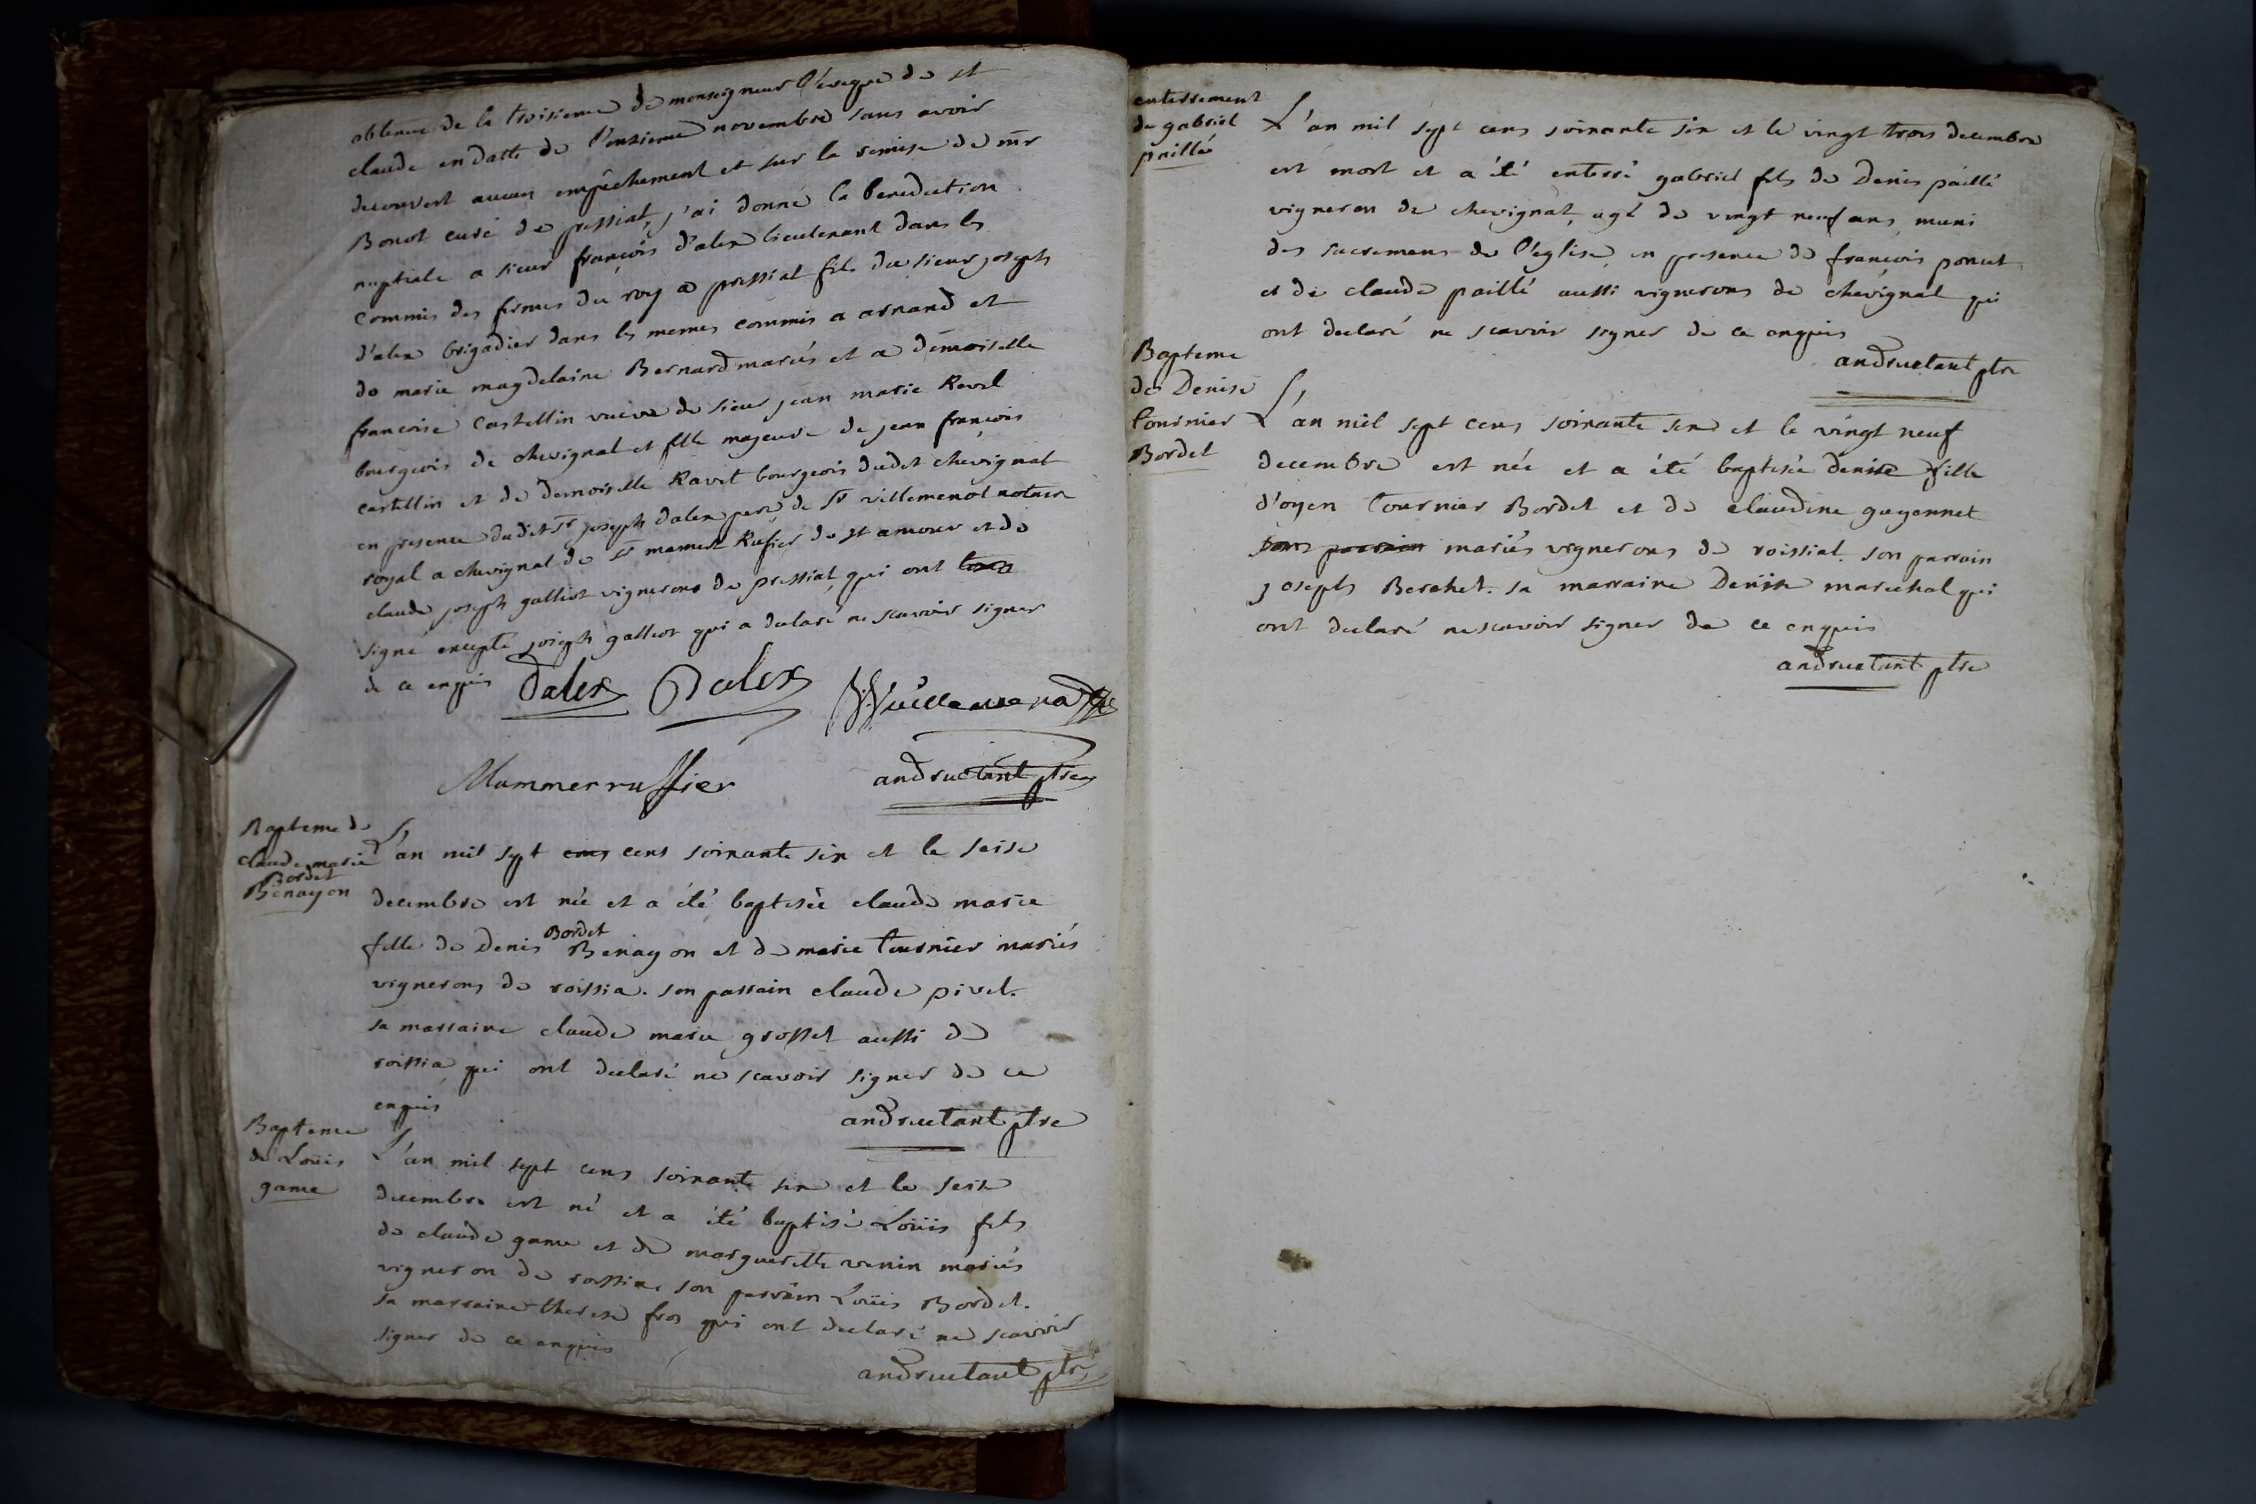 obtenue de la troisieme de monseigneur l'éveque de st
claude en datte de l'onzieme novembre sans avoir
decouvert aucun empêchement et sur la remise de mr
Bonot curé de pressiat, j'ai donné la benediction
nuptiale a sieur françois d'alex lieutenant dans les
commis des fermes du roy a pressiat fils du sieur joseph
d'alex brigadier dans les memes commis a arnand et
de marie magdelaine Bernard mariés et a demoiselle
francoise Castellin vueve de sieur jean marie Ravel
bourgeois de chevignat et fille majeure de jean françois
castellin et de demoiselle Ravet bourgeois dudit chevignat
en presence dudit sr joseph dalex pere de sr villemenot notaire
royal a chevignat de sr mamert Rufier de st amour et de
claude joseph galliot vignerons de pressiat, qui ont
signé excepté joseph galliot qui a declaré ne scavoir signer
de ce enquis
Dalex Dalex Vuillemenot
Mammerruffier andructant ptre
Bapteme de
claude marie
Bordet
Benayon
L'an mil sept cens cens soixante six et le seise
decembre est née et a été baptisée claude marie
fille de Denis Bordet Benayon et de marie tournier mariés
vignerons de roissia. son parrain claude pivet.
sa marraine claude marie grosset aussi de
roissia qui ont declaré ne scavoir signer de ce
enquis
andructant ptre
Bapteme
de Loüis
game
L'an mil sept cens soixante six et le seise
decembre est né et a été baptisé Loüis fils
de claude game et de marguerette venin mariés
vigneron de roissia, son parrain Loüis Bordet.
sa marraine therese fros qui ont declaré ne scavoir
signer de ce enquis
andructant ptre
enterrement
de gabriel
paillé
L'an mil sept cens soixante six et le vingt trois decembre
est mort et a été enterré gabriel fils de Denis paillé
vigneron de chevignat, agé de vingt neuf ans, muni
des sacremens de l'eglise, en presence de françois poncet
et de claude paillé aussi vignerons de chevignat qui
ont declaré ne scavoir signer de ce enquis
andructant ptre
Bapteme
de Denise
tournier
Bordet
L'an mil sept cens soixante six et le vingt neuf
decembre est née et a été baptisée denise fille
d'oyen tournier Bordet et de claudine guyennet
sons parrain mariés vignerons de roissiat. son parrain
joseph Berchet. sa marraine Denise marechal qui
ont declaré ne scavoir signer de ce enquis
andructant ptre